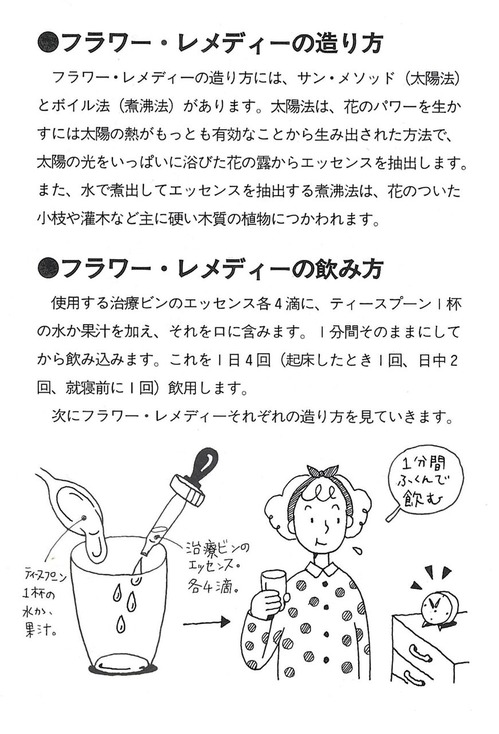 ●フラワー・レメディーの造り方
フラワー・レメディーの造り方には、サン・メソッド（太陽法）
とボイル法（煮沸法）があります。太陽法は、花のパワーを生か
すには太陽の熱がもっとも有効なことから生み出された方法で、
太陽の光をいっぱいに浴びた花の露からエッセンスを抽出します。
また、水で煮出してエッセンスを抽出する煮沸法は、花のついた
小枝や灌木など主に硬い木質の植物につかわれます。
●フラワー・レメディーの飲み方
使用する治療ビンのエッセンス各4滴に、ティースプーン1杯
の水か果汁を加え、それを口に含みます。1分間そのままにして
から飲み込みます。これを1日4回（起床したとき1回、日中2
回、就寝前に1回）飲用します。
次にフラワー・レメディーそれぞれの造り方を見ていきます。
1分間
ふくんで
飲む
治療ビンの
エッセンス。
各4滴。
ティースプーン
1杯の
水か、
果汁。